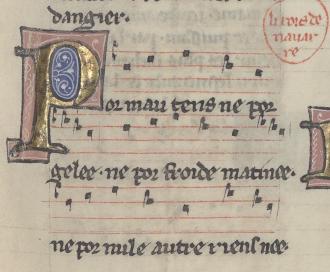 dangier.
li rois de
nauar
re
Por mau tens ne por
gelee· ne por froide matinee·
ne por nule autre riens nee·